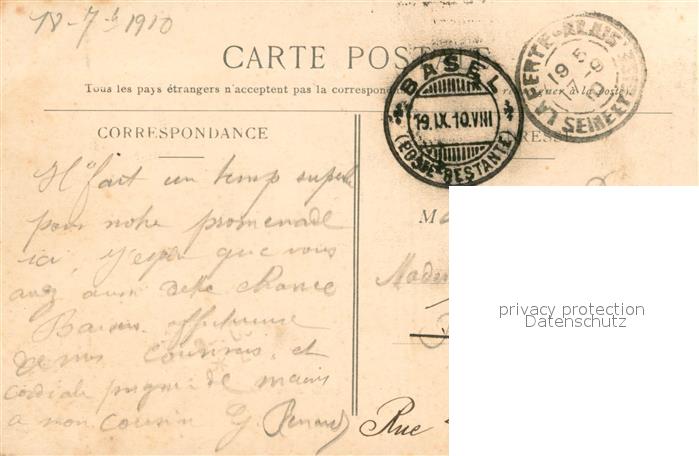 18-7bre 1910
CARTE POSTALE
Tous les pays étrangers n'acceptent pas la correspon
à la poste).
CORRESPONDANCE
RESSE
LA FERTE-ALAIS SEINE ET
BASEL
19.IX.10.VIII
(POSTE RESTANTE)
Il fait un temps superbe
pour notre promenade
ici, j'espère que vous
avez aussi cette chance
Baisers affectueuse
de vos cousines et
cordiale poignée de mains
a mon cousin G. Renard
M
Rue
privacy protection
Datenschutz